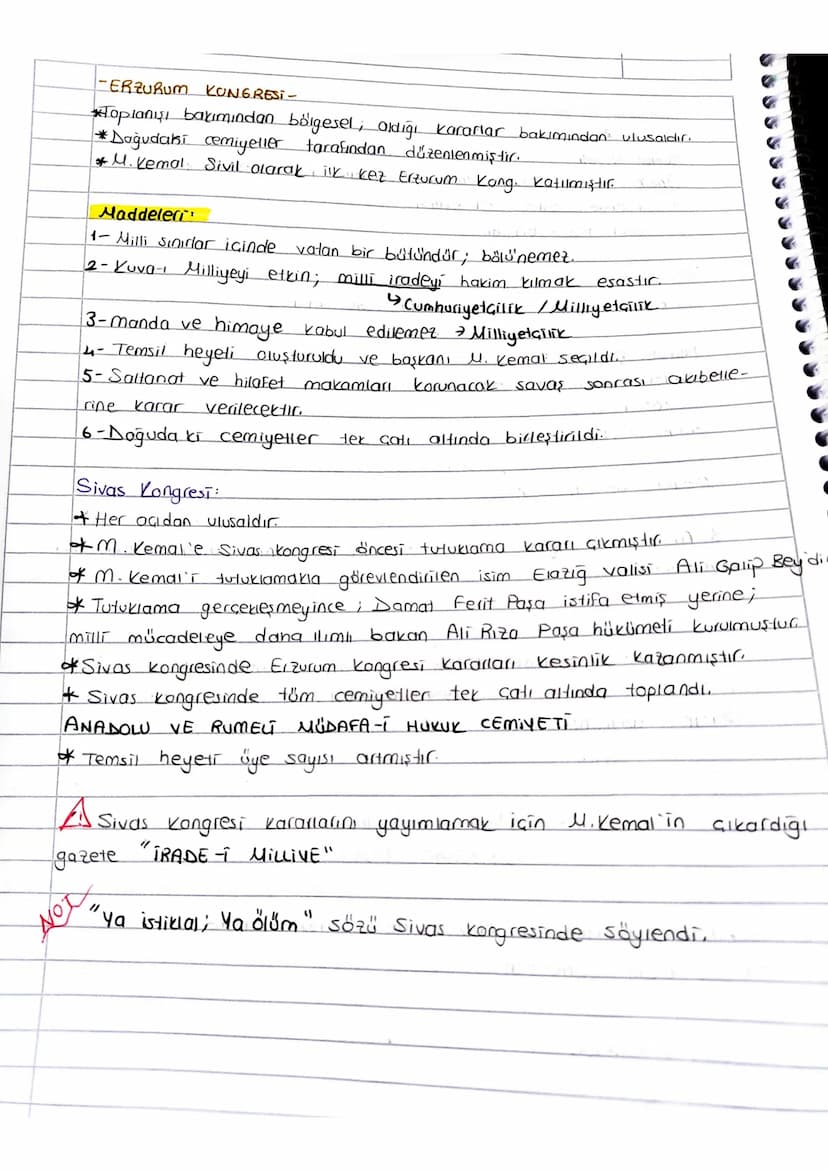 -ERZURUM KONGRESİ-
*Toplanışı bakımından bölgesel; aldığı kararlar bakımından ulusaldır.
*Doğudaki cemiyetler tarafından düzenlenmiştir.
*M. Kemal Sivil olarak ilk kez Erzurum Kong. katılmıştır.
Maddeleri:
1- Milli sınırlar içinde vatan bir bütündür; bölünemez.
2- Kuva-ı Milliyeyi etkin; milli iradeyi hakim kılmak esastır.
↳Cumhuriyetçilik / Milliyetçilik
3- manda ve himaye kabul edilemez → Milliyetçilik
4- Temsil heyeti oluşturuldu ve başkanı M. Kemal seçildi.
5- Saltanat ve hilafet makamları korunacak savaş sonrası akıbetle-
rine karar verilecektir.
6-Doğudaki cemiyetler tek çatı altında birleştirildi.
Sivas Kongresi:
* Her açıdan ulusaldır.
* M. Kemal'e Sivas kongresi öncesi tutuklama kararı çıkmıştır.
* M. Kemal'i tutuklamakla görevlendirilen isim Elazığ valisi Ali Galip Bey'di
* Tutuklama gerçekleşmeyince; Damat Ferit Paşa istifa etmiş yerine;
milli mücadeleye daha ılımlı bakan Ali Rıza Paşa hükümeti kurulmuştur
* Sivas kongresinde Erzurum kongresi kararları kesinlik kazanmıştır.
* Sivas kongresinde tüm cemiyetler tek çatı altında toplandı.
ANADOLU VE RUMELİ MÜDAFA-İ HUKUK CEMİYETİ
* Temsil heyeti üye sayısı artmıştır.
⚠ Sivas kongresi kararlarını yayımlamak için M.Kemal'in çıkardığı
gazete "İRADE-İ MİLLİYE"
NOT "Ya istiklal; Ya ölüm" sözü Sivas kongresinde söylendi.